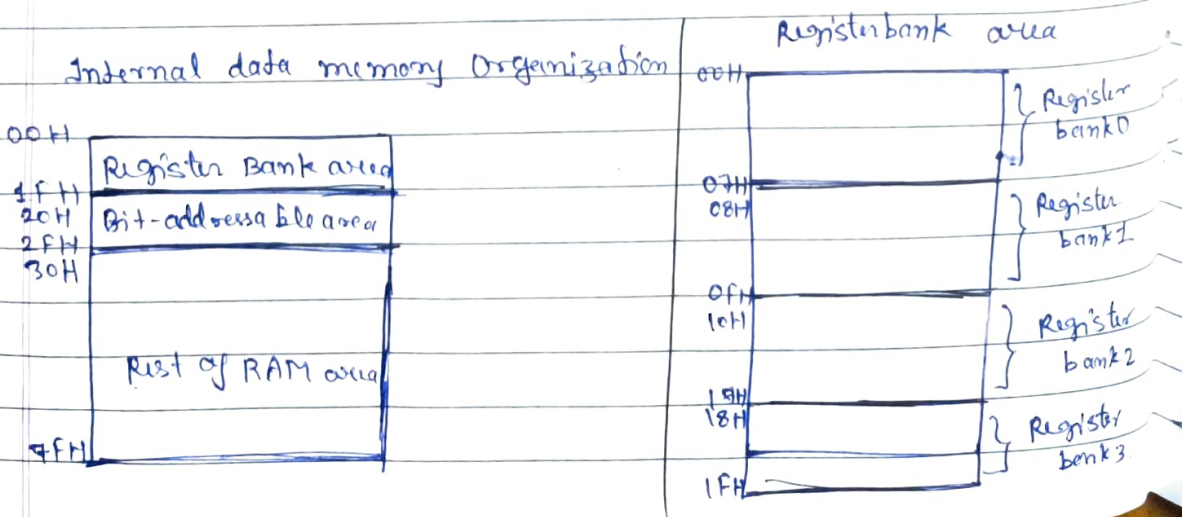 Internal data memory Organization
00H
Register Bank area
1FH
20H Bit-addressable area
2FH
30H
Rest of RAM area
7FH
Registerbank area
00H
Register
bank0
07H
08H
Register
bank1
0FH
10H
Register
bank2
17H
18H
Register
bank3
1FH